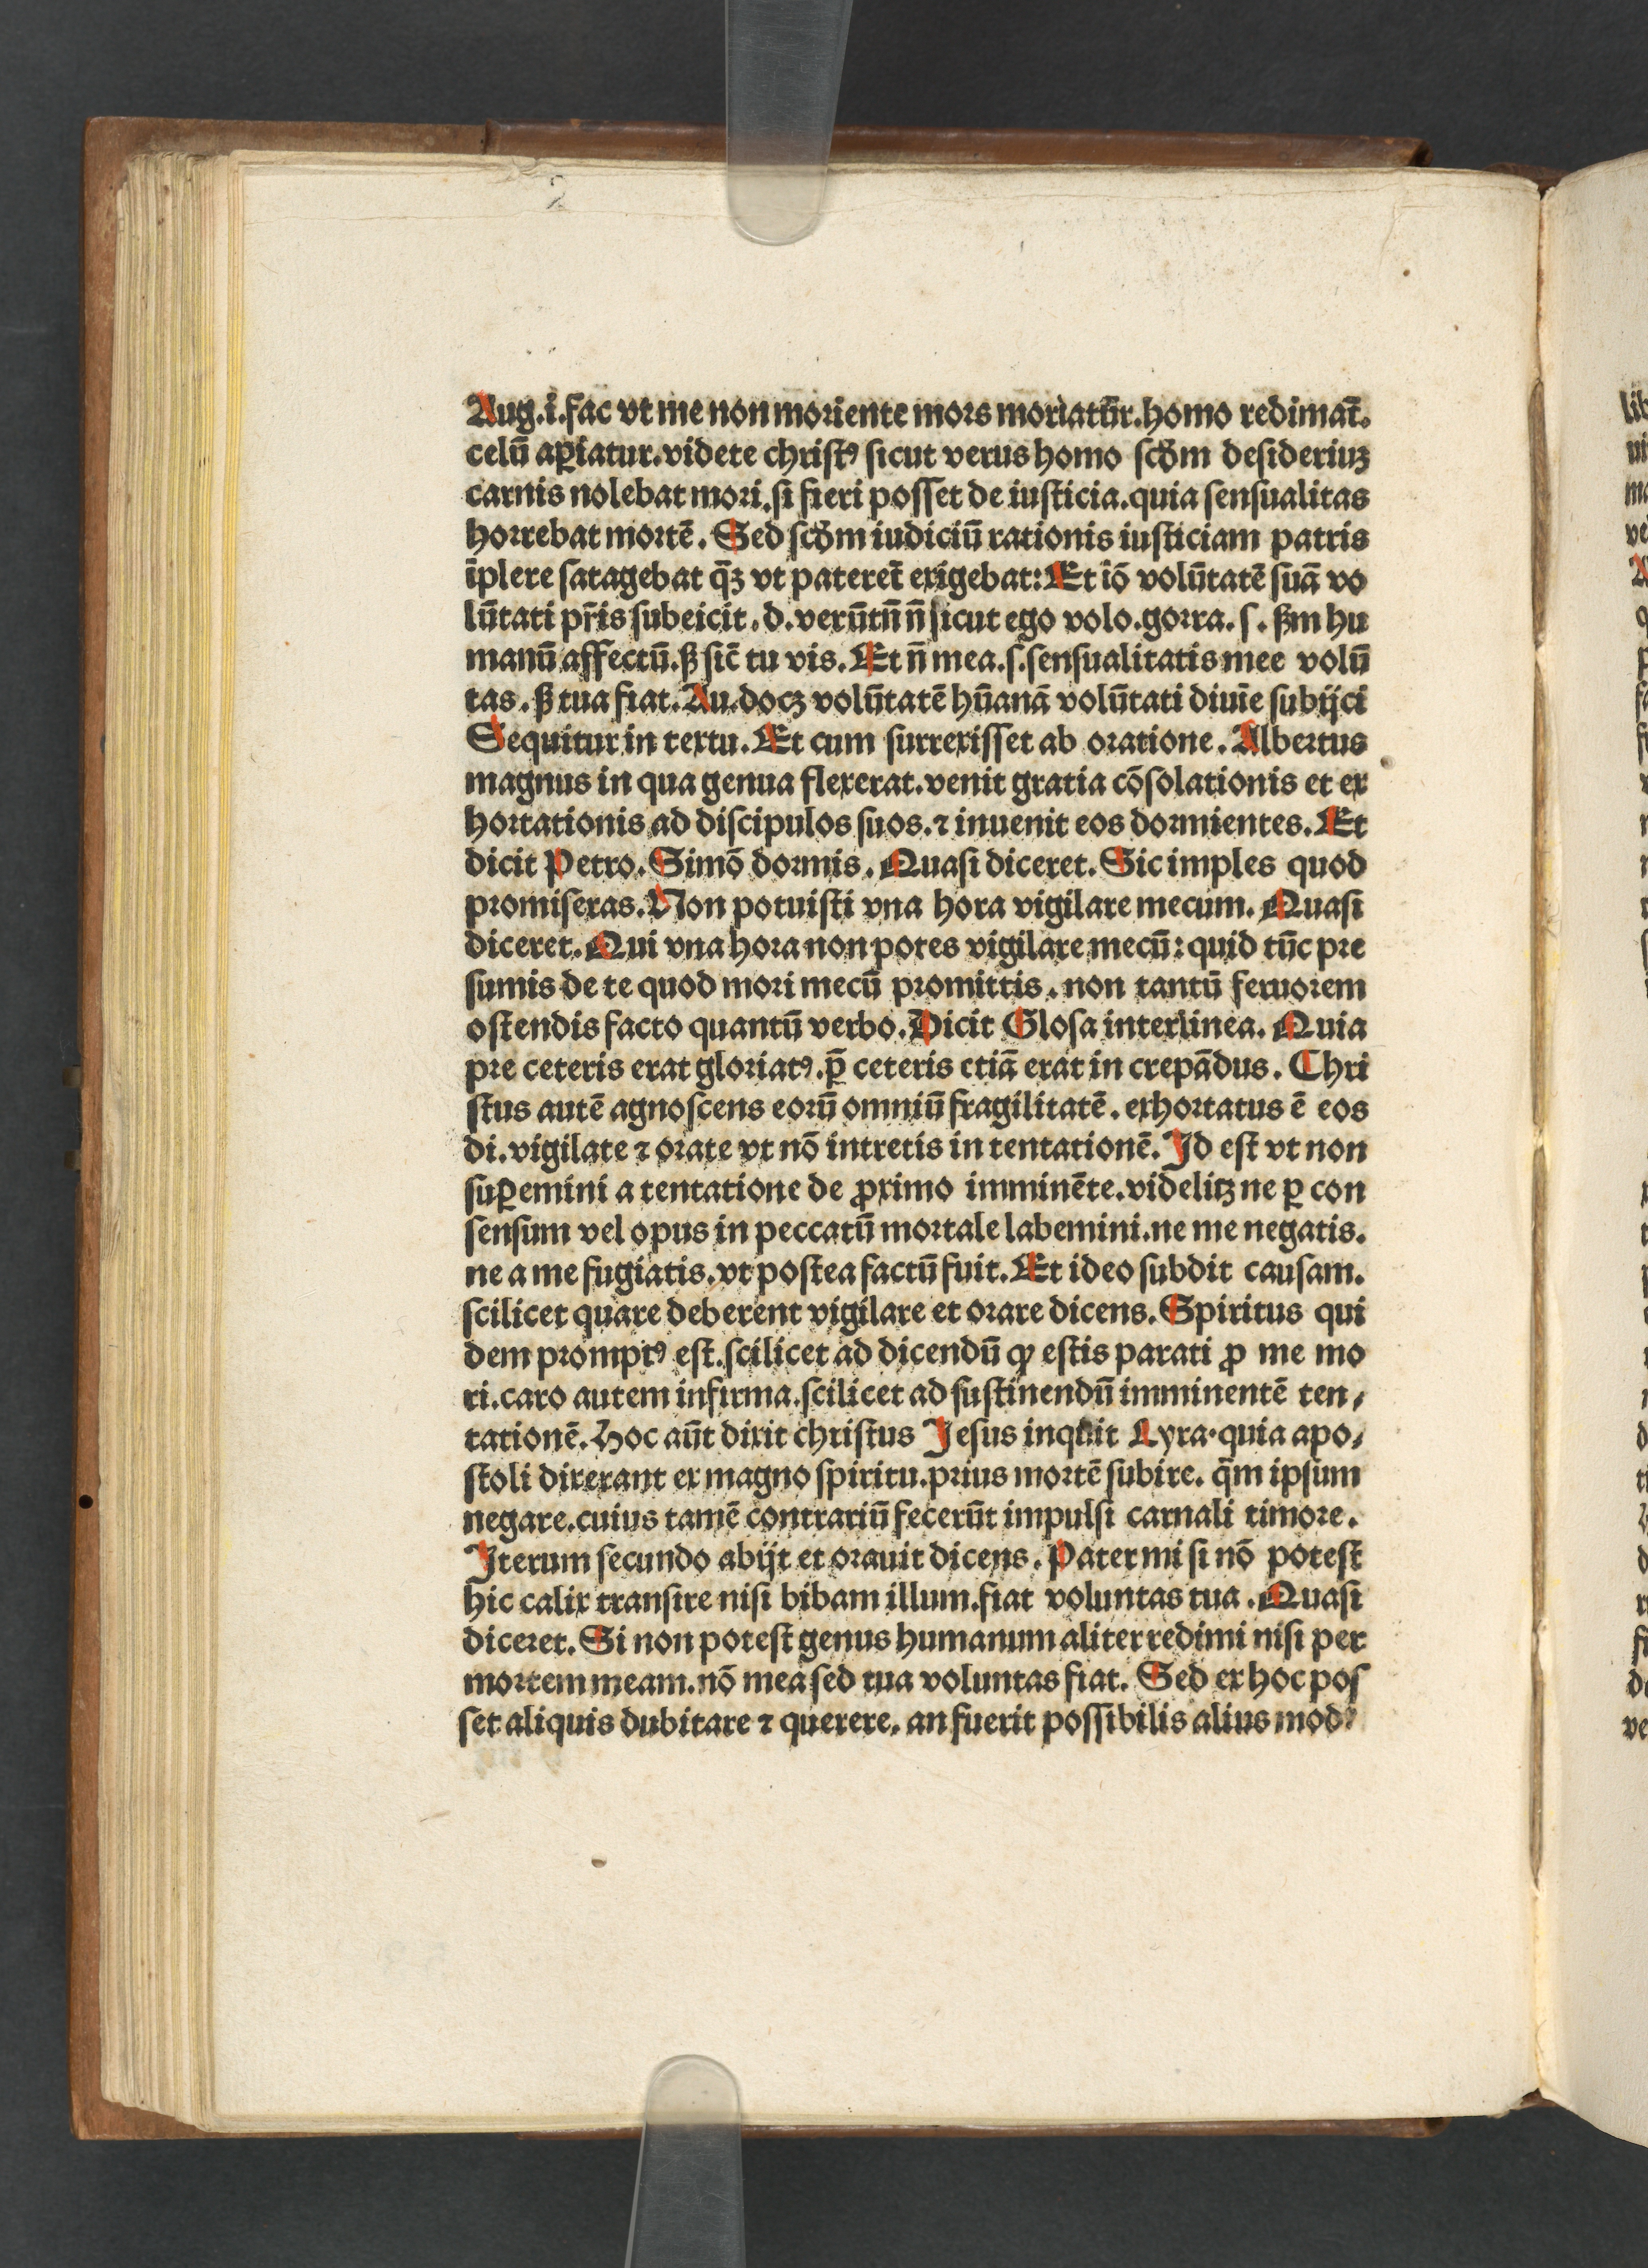 Aug.i.fac vt me non moriente mors moriatur̄.homo redimat̄.
celū aꝑiatur.videte christꝰ sicut verus homo scd̄m desideriuꝫ
carnis nolebat mori.si fieri posset de iusticia.quia sensualitas
horrebat mortē. Sed scd̄m iudiciū rationis iusticiam patris
īplere satagebat q̄ꝫ vt pateret̄ exigebat: Et iō volūtatē suā vo
lūtati pr̄is subeicit.d.verūtn̄ n̄ sicut ego volo.gorra.s.ẜm hu
manū affectū.ꝫ sic̄ tu vis. Et n̄ mea.s.sensualitatis mee volū
tas.ꝫ tua fiat. Au.docꝫ volūtatē hūanā volūtati diuīe subijci
Sequitur in textu. Et cum surrexisset ab oratione. Albertus
magnus in qua genua flexerat.venit gratia cōsolationis et ex
hortationis ad discipulos suos.⁊ inuenit eos dormientes. Et
dicit Petro. Simō dormis. Quasi diceret. Sic imples quod
promiseras. Non potuisti vna hora vigilare mecum. Quasi
diceret. Qui vna hora non potes vigilare mecū: quid tūc pre
sumis de te quod mori mecū promittis. non tantū feruorem
ostendis facto quantū verbo. Dicit Glosa interlinea. Quia
pre ceteris erat gloriatꝰ.p̄ ceteris etiā erat in crepādus. Chri
stus autē agnoscens eorū omniū fragilitatē. exhortatus ē eos
di.vigilate ⁊ orate vt nō intretis in tentationē. Id est vt non
suꝑemini a tentatione de ꝓximo imminēte.videlitꝫ ne ꝑ con
sensum vel opus in peccatū mortale labemini.ne me negatis.
ne a me fugiatis.vt postea factū fuit. Et ideo subdit causam.
scilicet quare deberent vigilare et orare dicens. Spiritus qui
dem promptꝰ est.scilicet ad dicendū ꝙ estis parati ꝓ me mo
ri.caro autem infirma.scilicet ad sustinendū imminentē ten⸗
tationē. Hoc aūt dixit christus Jesus inquit Lyra.quia apo⸗
stoli dixerant ex magno spiritu.prius mortē subire. q̄m ipsum
negare.cuius tamē contrariū fecerūt impulsi carnali timore.
Iterum secundo abijt et orauit dicens. Pater mi si nō potest
hic calix transire nisi bibam illum.fiat voluntas tua. Quasi
diceret. Si non potest genus humanum aliter redimi nisi per
mortem meam.nō mea sed tua voluntas fiat. Sed ex hoc pos
set aliquis dubitare ⁊ querere. an fuerit possibilis alius modꝰ